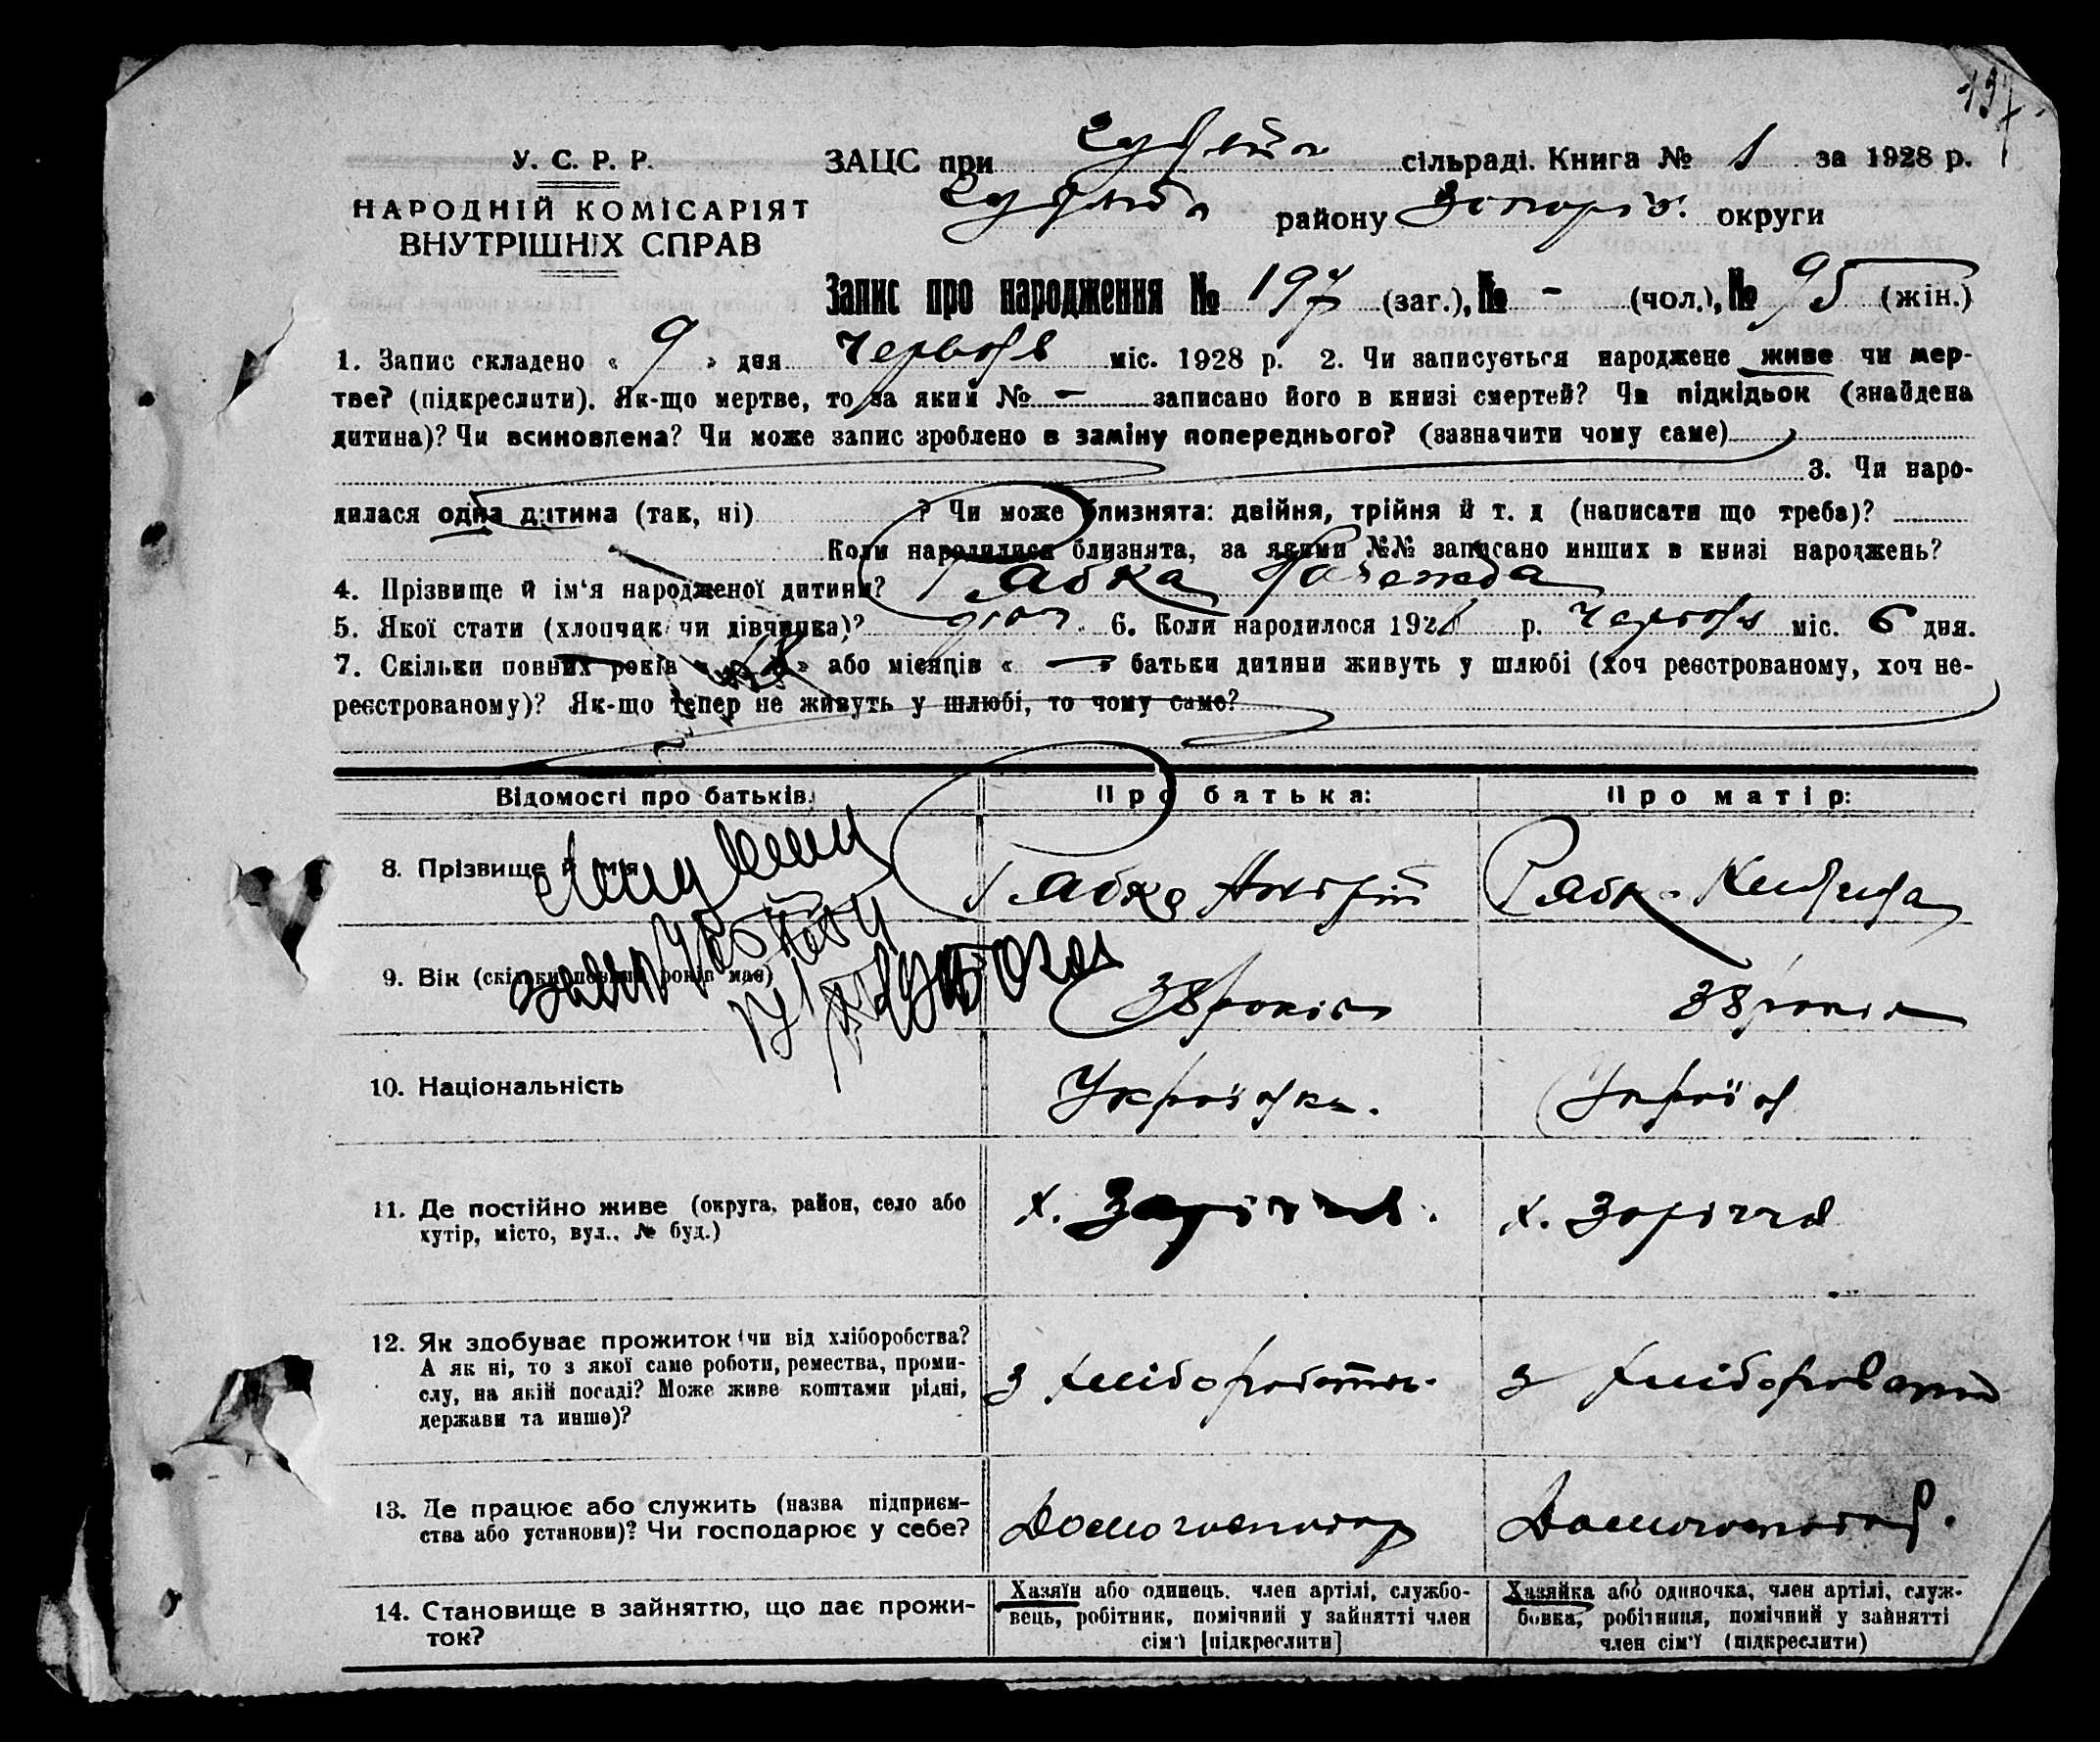 197
У. С. Р. Р.
НАРОДНІЙ КОМІСАРІЯТ
ВНУТРІШНІХ СПРАВ
ЗАЦС при сільраді. Книга № 1 за 1928 р.
району Запоріз. округи
Запис про народження № 197 (заг.), № - (чол.), № 95 (жін.)
1. Запис складено « 9 » дня Червня міс. 1928 р. 2. Чи записується народжене живе чи мер-
тве? (підкреслити). Як-що мертве, то за яким № — записано його в книзі смертей? Чи підкідьок (знайдена
дитина)? Чи всиновлена? Чи може запис зроблено в заміну попереднього? (зазначити чому саме)
3. Чи наро-
дилася одна дитина (так, ні) ? Чи може близнята: двійня, трійня й т. д (написати що треба)?
Коли народилися близнята, за якими №№ записано инших в книзі народжень?
4. Прізвище й ім‘я народженої дитини? Рабка
5. Якої стати (хлопчик чи дівчинка)? 6. Коли народилося 1928 р. червня міс. 6 дня.
7. Скільки повних років « » або місяців « — » батьки дитини живуть у шлюбі (хоч реєстрованому, хоч не-
реєстрованому)? Як-що тепер не живуть у шлюбі, то чому саме?
Відомості про батьків.
Про батька:
Про матір:
8. Прізвище й ім‘я
Рабка Андрій
Рабка
9. Вік (скільки повних років має)
38 років
38 років
10. Національність
Українськ.
Україн
11. Де постійно живе (округа, район, село або
хутір, місто, вул., № буд.)
х. Заріччя.
х. Заріччя
12. Як здобуває прожиток (чи від хліборобства?
А як ні, то з якої саме роботи, ремества, проми-
слу, на якій посаді? Може живе коштами рідні,
держави та инше)?
з хліборобства
з хліборобства
13. Де працює або служить (назва підприєм-
ства або установи)? Чи господарює у себе?
Домогосподар
Домогосподар.
14. Становище в зайняттю, що дає прожи-
ток?
Хазяїн або одинець, член артілі, службо-
вець, робітник, помічний у зайнятті член
сім‘ї [підкреслити]
Хазяйка або одиночка, член артілі, служ-
бовка, робітниця, помічний у зайнятті
член сім‘ї (підкреслити)